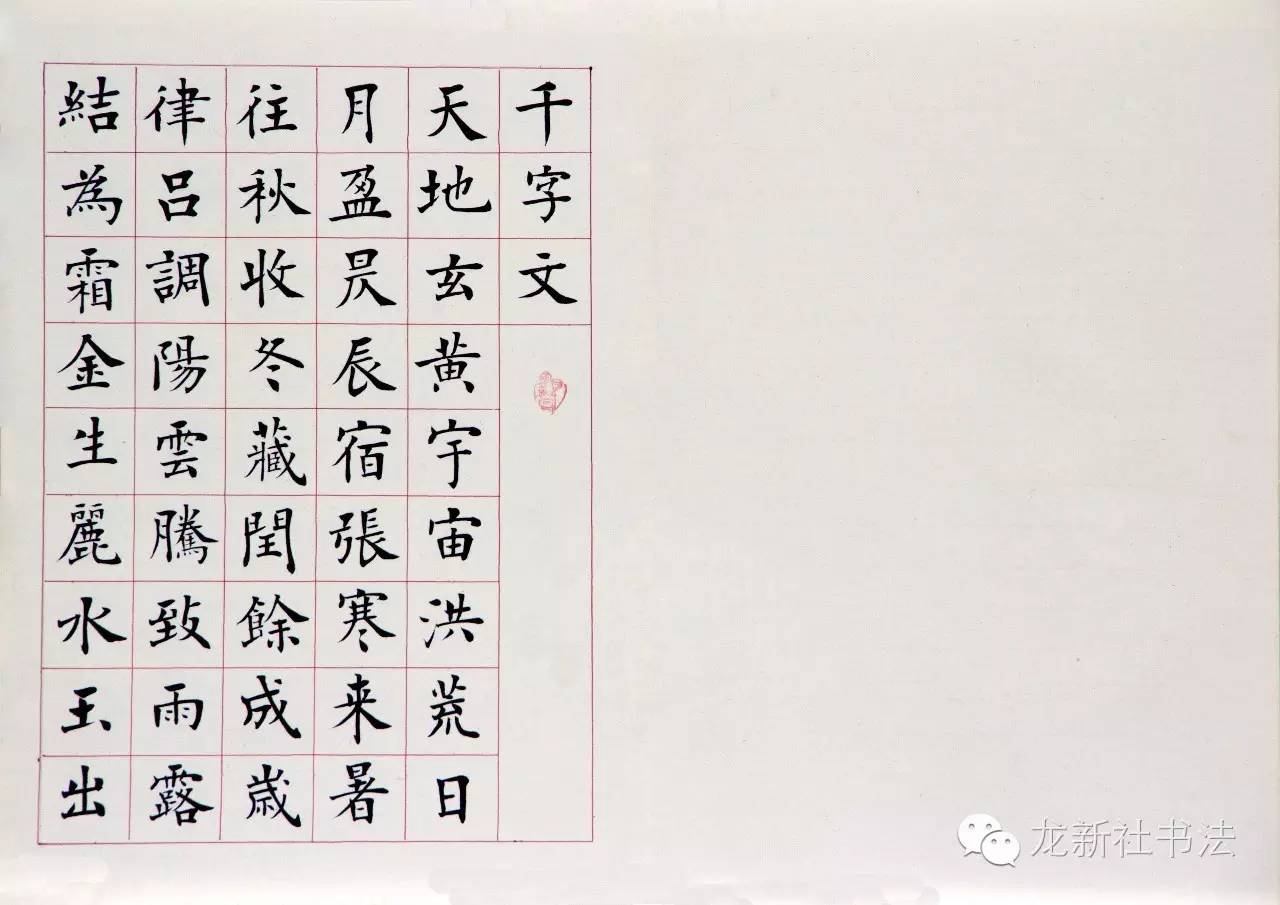 千字文
天地玄黄宇宙洪荒日
月盈昃辰宿張寒来暑
往秋收冬藏閏餘成歲
律呂調陽雲騰致雨露
結為霜金生麗水玉出
龙新社书法